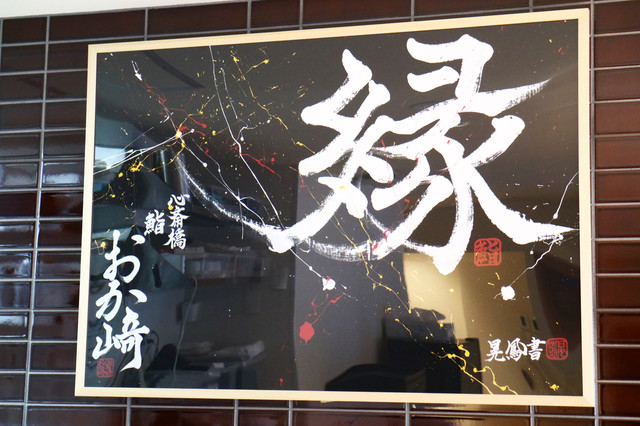 縁
心斎橋
鮨
おか崎
晃鳳書